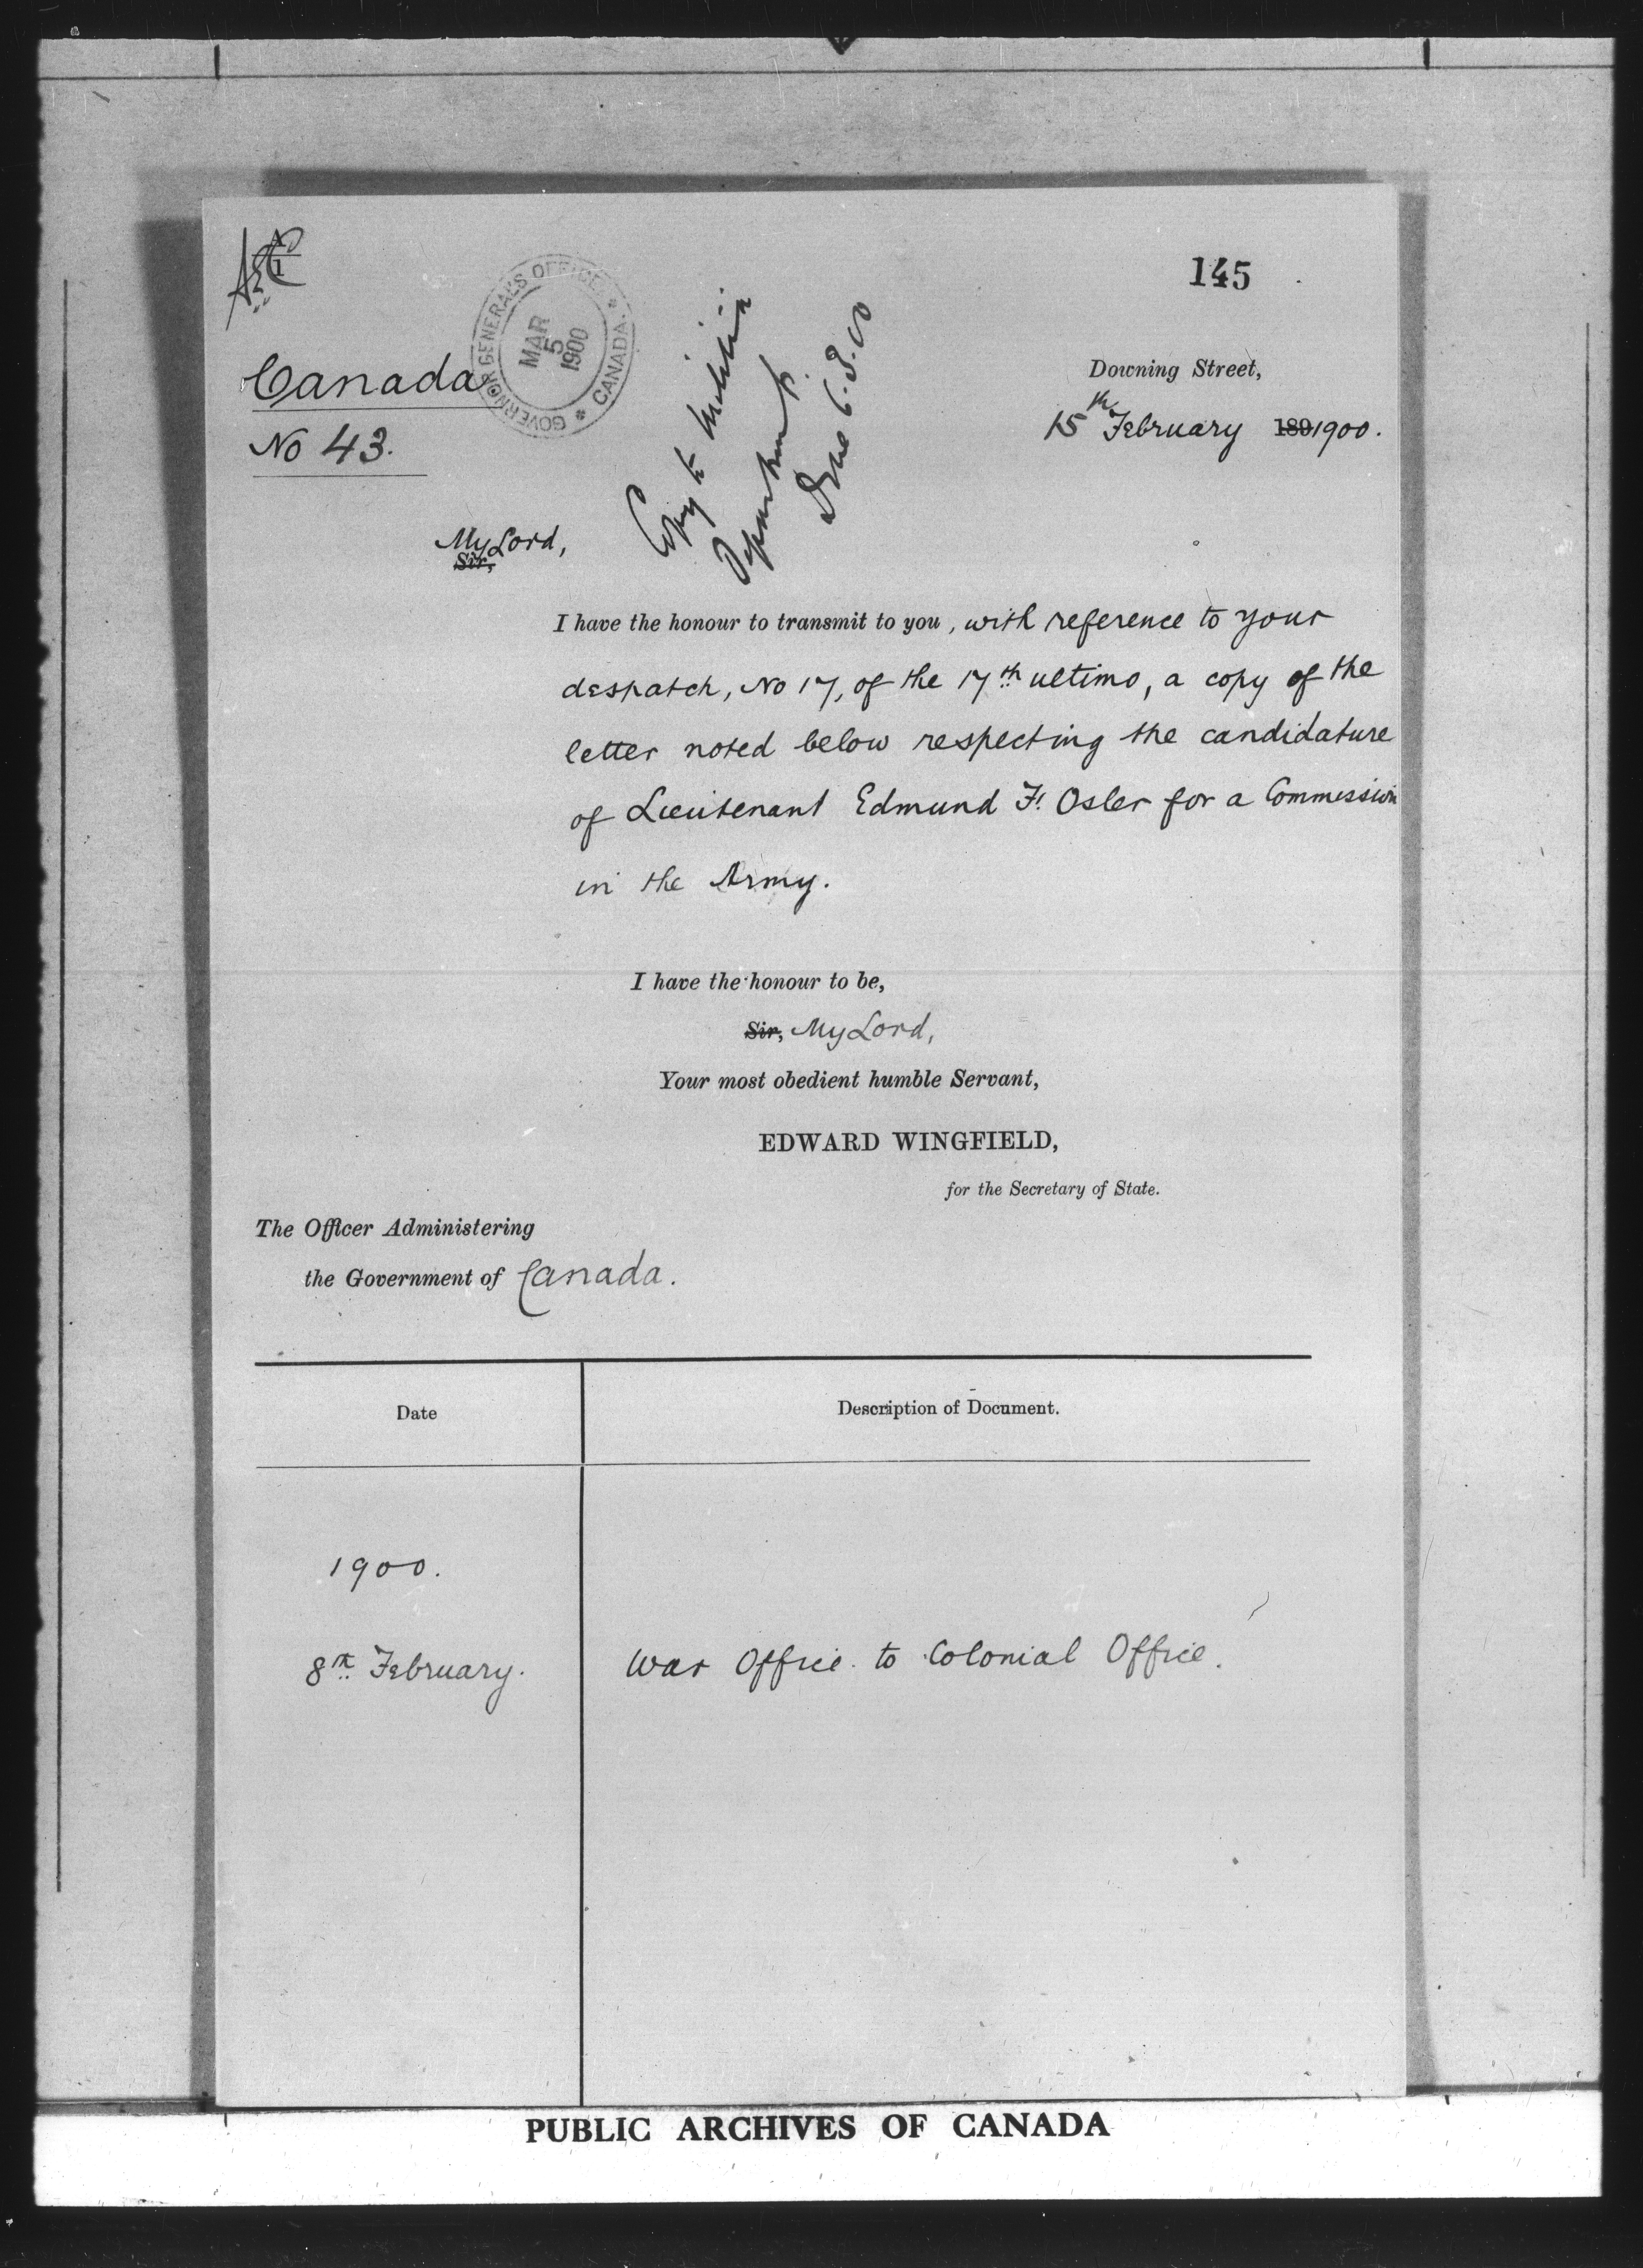 145
GOVERNOR GENERAL'S OFFICE
CANADA
MAR
5
1900
Canada
No 43.
Copy to Militia
Department
6.3.00
Downing Street,
15th February 189 1900.
My Lord,
Sir,
I have the honour to transmit to you, with reference to your
despatch, No 17, of the 17th ultimo, a copy of the
letter noted below respecting the candidature
of Lieutenant Edmund F. Osler for a Commission
in the Army.
I have the honour to be,
Sir, My Lord,
Your most obedient humble Servant,
EDWARD WINGFIELD,
for the Secretary of State.
The Officer Administering
the Government of Canada.
Date
Description of Document.
1900.
8th February.
War Office to Colonial Office.
PUBLIC ARCHIVES OF CANADA